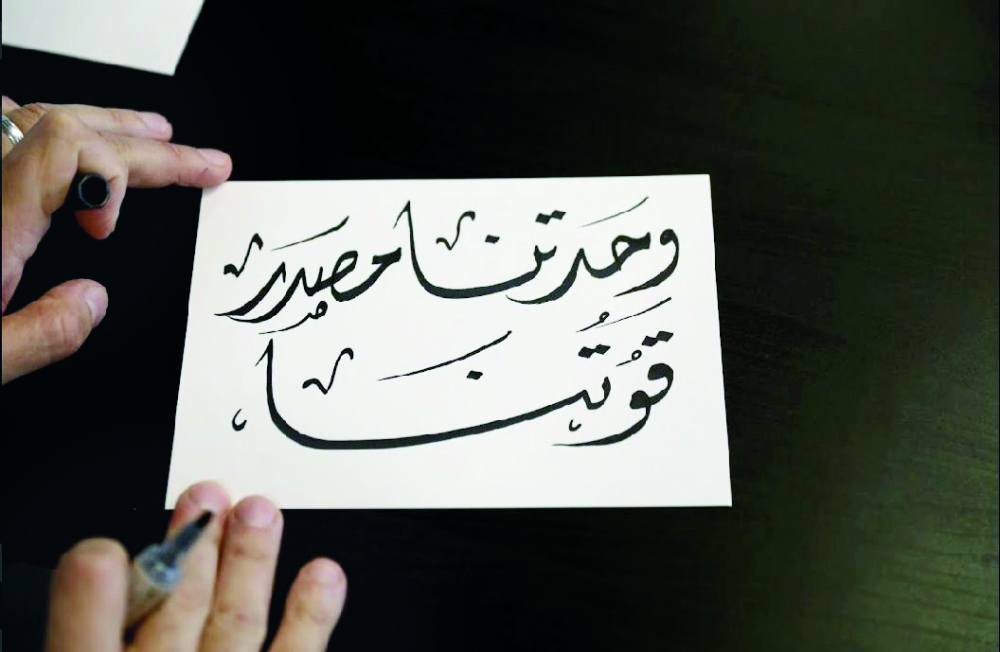 وحدتنا مصدر
قوتنا